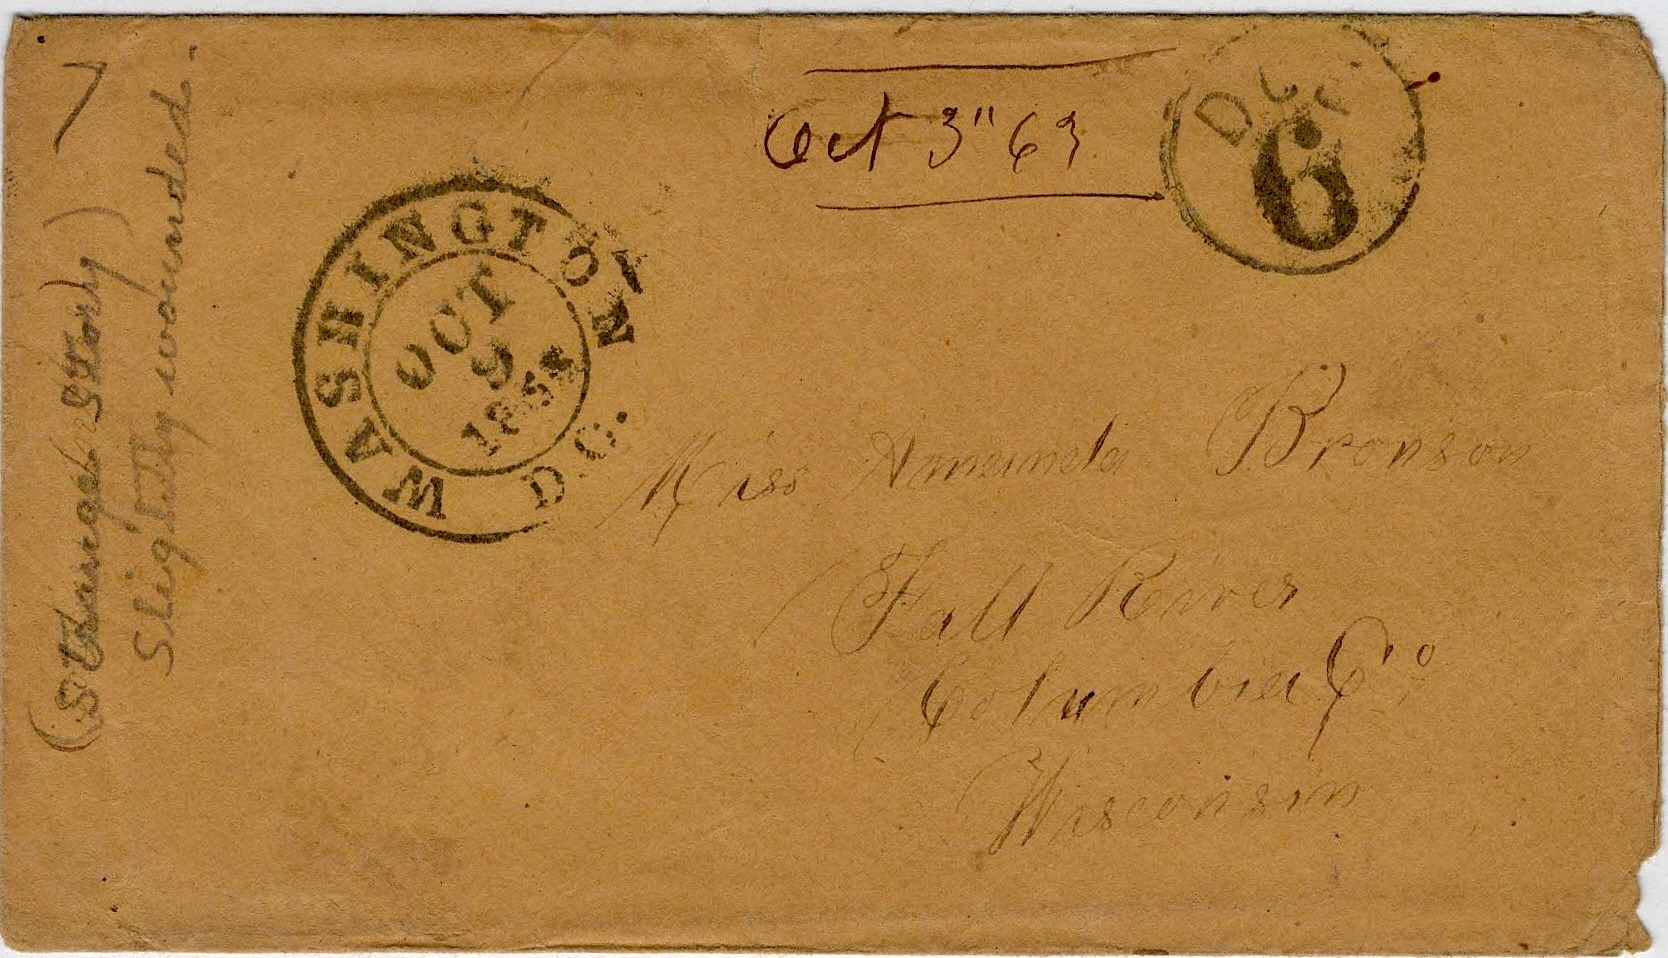 Oct 3" 63
DUE
6
WASHINGTON D.C.
OCT
9
1863
Miss Ameinda Bronson
Fall River
Columbia Co
Wisconsin
(Strange Story)
Slightly wounded.